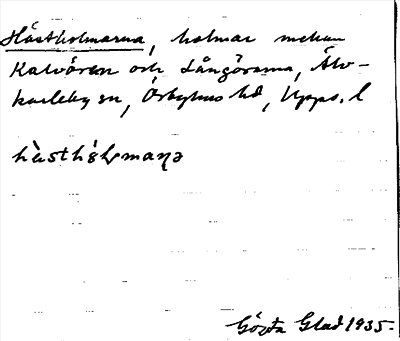 Hästholmarna, holmar mellan
Kalvören och Långörarna, Älv-
karleby sn, Örbyhus hd, Upps. l
hàsthólmaṇə
Gösta Glad 1935.